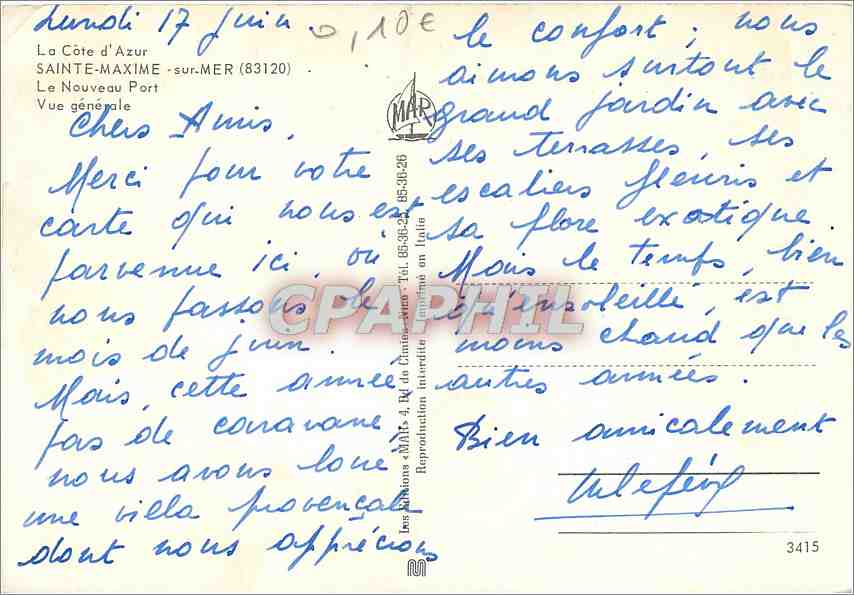 Lundi 17 juin.
0,10€
La Côte d'Azur
SAINTE-MAXIME - sur-MER (83120)
Le Nouveau Port
Vue générale
Chers Amis,
Merci pour votre
carte qui nous est
parvenue ici, où
nous passons le
mois de juin.
Mais, cette année,
pas de caravane;
nous avons loué
une villa provençale
dont nous apprécions
MAR
Les Editions «MAR» 4, Bd de Cimiez - Nice - Tél. 85-36-25 85-36-26
Reproduction Interdite - Imprimé en Italie
CPAPHIL
le confort; nous
aimons surtout le
grand jardin avec
ses terrasses, ses
escaliers fleuris et
sa flore exotique
Mais le temps, bien
qu'ensoleillé, est
moins chaud que les
autres années.
Bien amicalement
3415